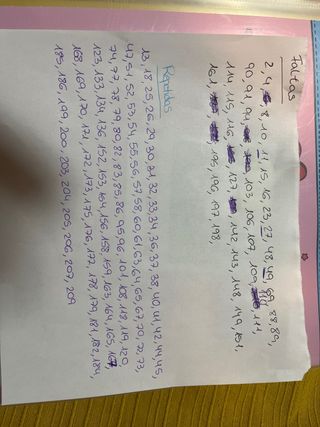 Faltas
2, 4, 8, 10, 11, 15, 16, 23, 27, 48, 49, 88, 89,
90, 91, 94, 103, 106, 107, 109, 111,
114, 115, 116, 127, 142, 143, 148, 149, 151,
161, 195, 196, 197, 198
Repetidas
13, 18, 25, 26, 29, 30, 31, 32, 33, 34, 36, 37, 38, 40, 41, 42, 44, 45,
47, 51, 52, 53, 54, 55, 56, 57, 58, 60, 61, 63, 64, 65, 67, 70, 72, 73,
74, 77, 78, 79, 80, 82, 83, 85, 86, 95, 96, 101, 108, 112, 119, 120,
123, 133, 134, 136, 152, 153, 154, 156, 158, 159, 163, 164, 165, 167,
168, 169, 170, 171, 172, 173, 175, 176, 177, 178, 179, 181, 182, 184,
185, 186, 199, 200, 203, 204, 205, 206, 207, 209